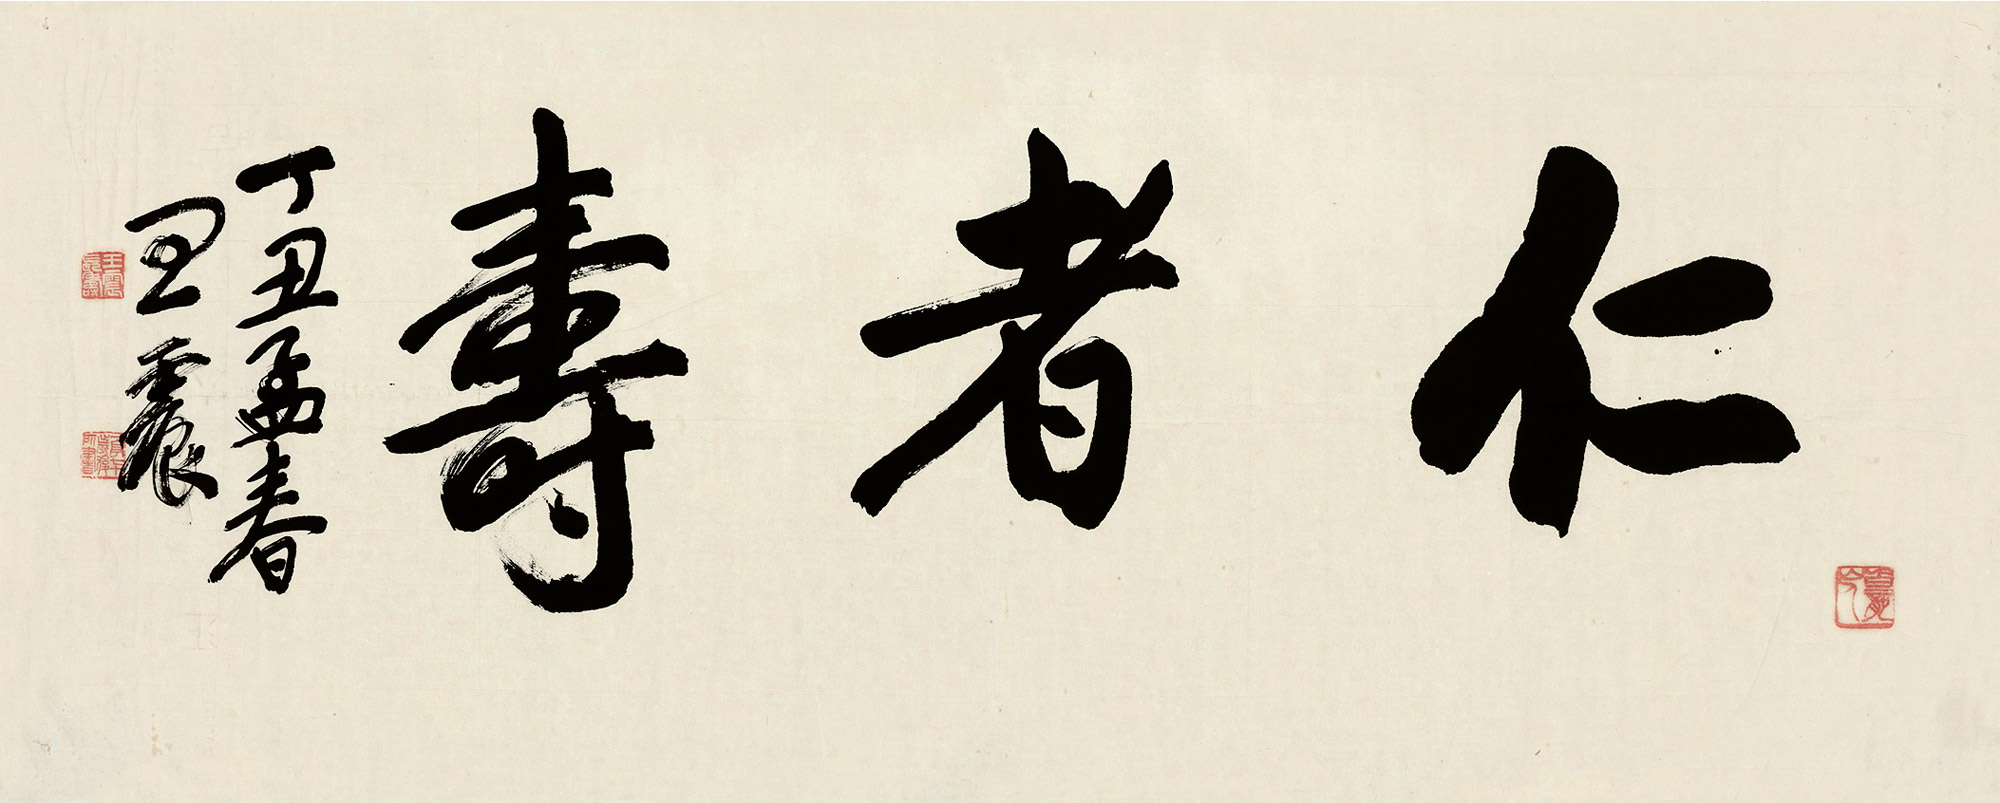 仁者壽
丁丑孟春
王震
王震長壽